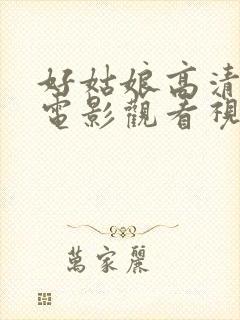 好姑娘高清
電影觀看視
萬家麗